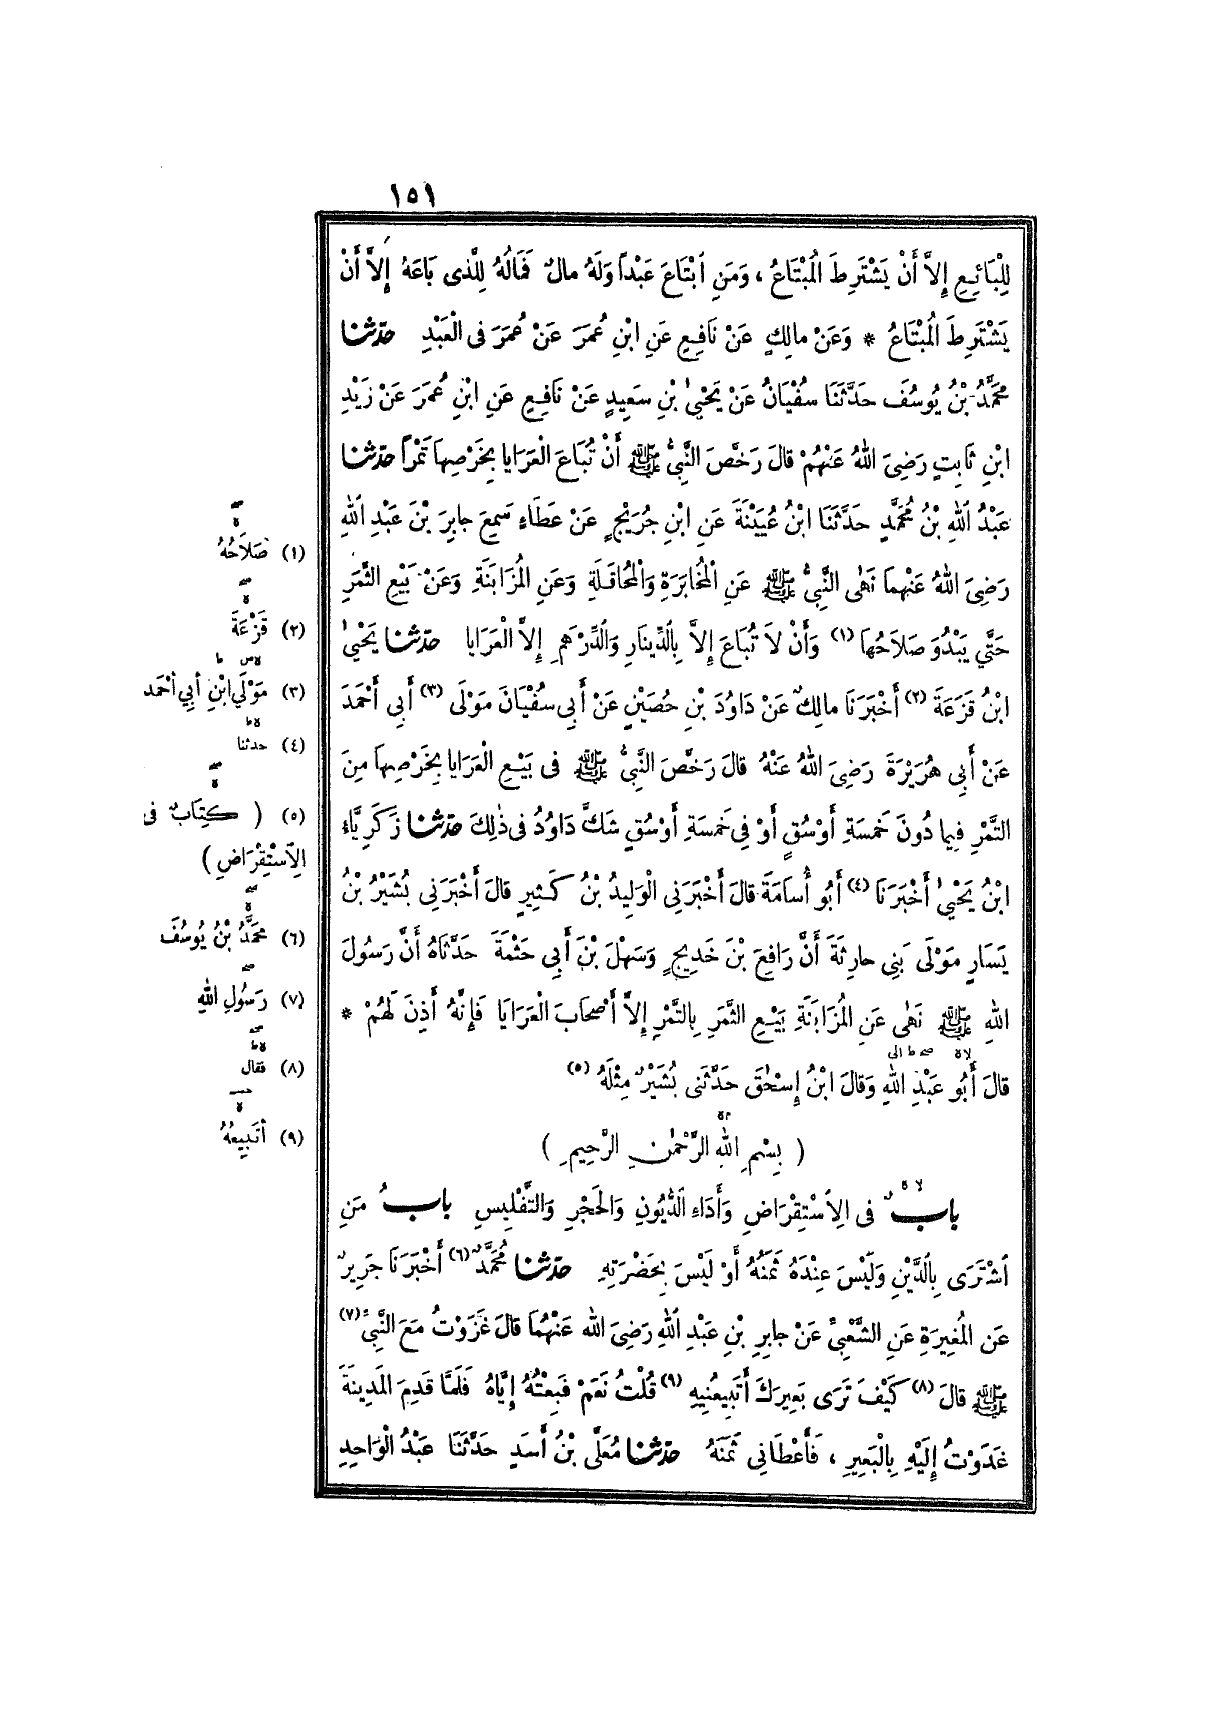 ١٥١
لِلْبَائِعِ إِلاَّ أَنْ يَشْتَرِطَ الْمُبْتَاعُ ، وَمَنِ ابْتَاعَ عَبْداً وَلَهُ مالٌ فَمَالُهُ لِلَّذِى بَاعَهُ إِلاَّ أَنْ
يَشْتَرِطَ الْمُبْتَاعُ * وَعَنْ مالِكٍ عَنْ نَافِعٍ عَنِ ابْنِ عُمَرَ عَنْ عُمَرَ فى الْعَبْدِ حدّثنا
مُحَمَّدُ بْنُ يُوسُفَ حَدَّثَنَا سُفْيَانُ عَنْ يَحْيىٰ بْنِ سَعِيدٍ عَنْ نَافِعٍ عَنِ ابْنِ عُمَرَ عَنْ زَيْدِ
ابْنِ ثَابِتٍ رَضِىَ اللهُ عَنْهُمْ قالَ رَخَّصَ النَّبِىُّ ﷺ أَنْ تُبَاعَ الْعَرَايا بِخَرْصِهاَ تَمْراً حدّثنا
عَبْدُ اللهِ بْنُ مُحَمَّدٍ حَدَّثَنَا ابْنُ عُيَيْنَةَ عَنِ ابْنِ جُرَيْجٍ عَنْ عَطَاءٍ سَمِعَ جابِرَ بْنَ عَبْدِ اللهِ
رَضِىَ اللهُ عَنْهما نَهٰى النَّبِىُّ ﷺ عَنِ الْمُخابَرَةِ وَالْمُحَاقَلَةِ وَعَنِ الْمُزَابَنَةِ وَعَنْ بَيْعِ الثَّمَرِ
حَتَّي يَبْدُوَ صَلاَحُهاَ (١) وَأَنْ لاَ تُبَاعَ إِلاَّ بِالدِّينَارِ وَالدِّرْهَمِ إِلاَّ الْعَرَايا حدّثنا يَحْيىٰ
ابْنُ قَزَعَةَ (٢) أَخْبَرَنَا مالِكٌ عَنْ دَاوُدَ بْنِ حُصَيْنٍ عَنْ أَبى سُفْيَانَ مَوْلَى (٣) أَبِى أَحْمَدَ
عَنْ أَبِى هُرَيْرَةَ رَضِىَ اللهُ عَنْهُ قالَ رَخَّصَ النَّبِىُّ ﷺ فى بَيْعِ الْعَرَايا بِخَرْصِهاَ مِنَ
التَّمْرِ فِيما دُونَ خَمْسَةِ أَوْسُقٍ أَوْ فِى خَمْسَةِ أَوْسُقٍ شَكَّ دَاوُدُ فى ذٰلِكَ حدّثنا زَكَرِيَّاءُ
ابْنُ يَحْيىٰ أَخْبَرَنَا (٤) أَبُو أُسَامَةَ قالَ أَخْبَرَنِى الْوَلِيدُ بْنُ كَثِيرٍ قالَ أَخْبَرَنِى بُشَيْرُ بْنُ
يَسَارٍ مَوْلَى بَنِى حارِثَةَ أَنَّ رَافِعَ بْنَ خَدِيجٍ وَسَهْلَ بْنَ أَبِى حَثْمَةَ حَدَّثَاهُ أَنَّ رَسُولَ
اللهِ ﷺ نَهٰى عَنِ الْمُزَابَنَةِ بَيْعِ الثَّمَرِ بِالتَّمْرِ إِلاَّ أَصْحَابَ الْعَرَايَا فَإِنَّهُ أَذِنَ لَهُمْ *
لاه صح ط الى
قالَ أَبُو عَبْدِ اللهِ وَقالَ ابْنُ إِسْحٰقَ حَدَّثَنى بُشَيْرٌ مِثْلَهُ (٥)
( بِسْمِ اللهِ الرَّحْمٰنِ الرَّحِيمِ )
بابٌ فى الاِسْتِقْرَاضِ وَأَدَاءِ الدُّيُونِ وَالحَجْرِ وَالتَّفْلِيسِ بابُ مَنِ
اشْتَرَى بِالدَّيْنِ وَلَيْسَ عِنْدَهُ ثَمَنُهُ أَوْ لَيْسَ بِحَضْرَتِهِ حدّثنا مُحَمَّدٌ (٦) أَخْبَرَنَا جَرِيرٌ
عَنِ الْمُغِيرَةِ عَنِ الشَّعْبِىِّ عَنْ جابِرِ بْنِ عَبْدِ اللهِ رَضِىَ الله عَنْهُمَا قالَ غَزَوْتُ مَعَ النَّبِىِّ (٧)
ﷺ قالَ (٨) كَيْفَ تَرَى بَعِيرَكَ أَتَبِيعُنِيهِ (٩) قُلْتُ نَعَمْ فَبِعْتُهُ إِيَّاهُ فَلَمَّا قَدِمَ الْمَدِينَةَ
غَدَوْتُ إِلَيْهِ بِالْبَعِيرِ ، فَأَعْطَانِى ثَمَنَهُ حدّثنا مُعَلَّى بْنُ أَسَدٍ حَدَّثَنَا عَبْدُ الْوَاحِدِ
(١) صَلاَحُهُ
(٢) قَزْعَةَ
(٣) مَوْلَي ابْنِ أَبِي أَحْمَد
(٤) حدثنا
(٥) ( كِتَابٌ فى
الاِسْتِقْرَاضِ )
(٦) مُحَمَّدُ بْنُ يُوسُفَ
(٧) رَسُولِ اللهِ
(٨) فقال
(٩) أَتَبِيعُهُ